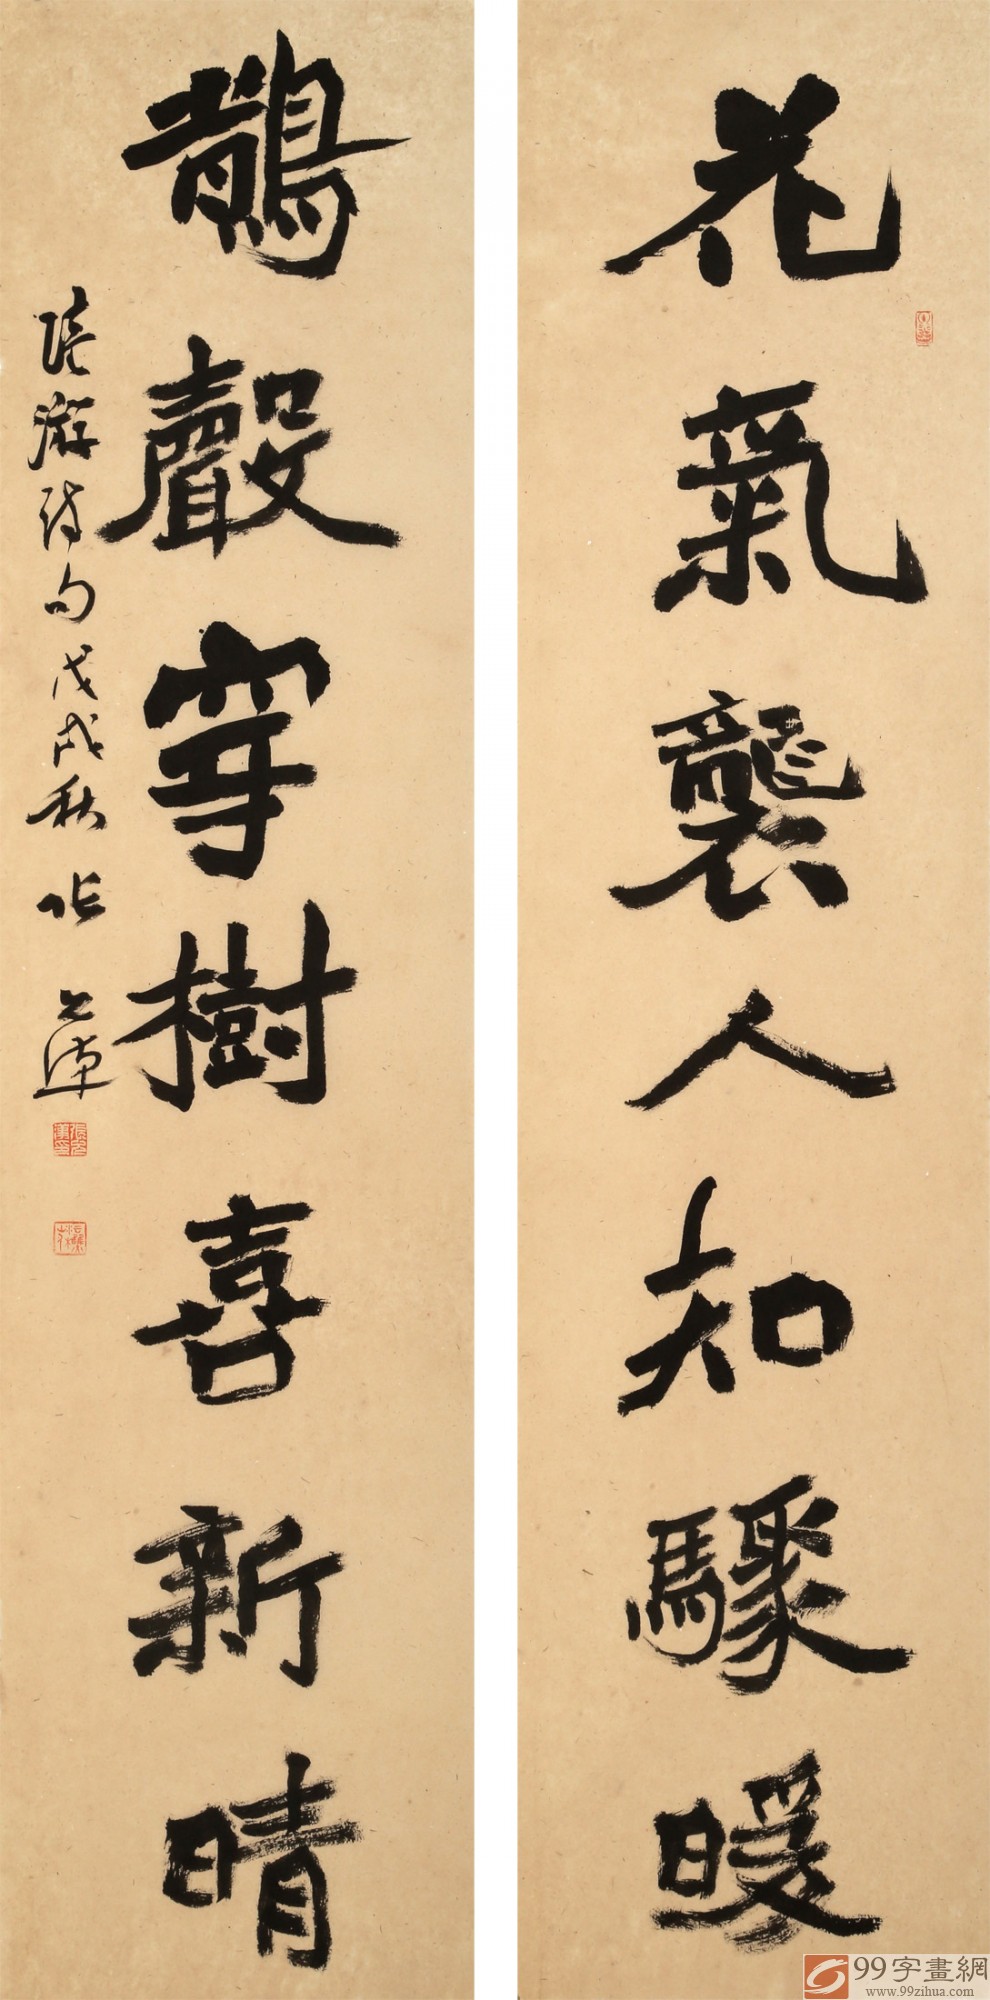 花氣襲人知驟暖
鵲聲穿樹喜新晴
陸游詩句戊戌秋非公渾
99字畫網
www.99zihua.com